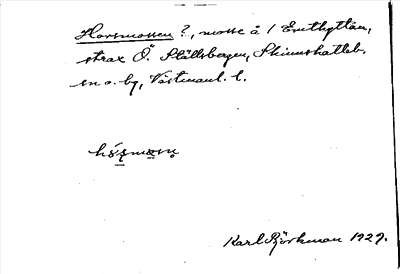 Horsmossen ?, mosse å 1 Emthyttan,
strax Ö. Ställbergen, Skinnskatteb.
sn o. bg, Västmanl. l.
Karl Björkman 1929.